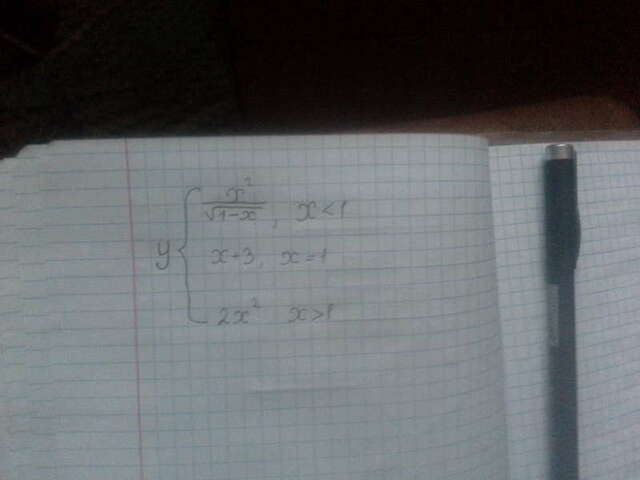 y { x² / √1-x , x<1
x+3, x=1
2x² x>1